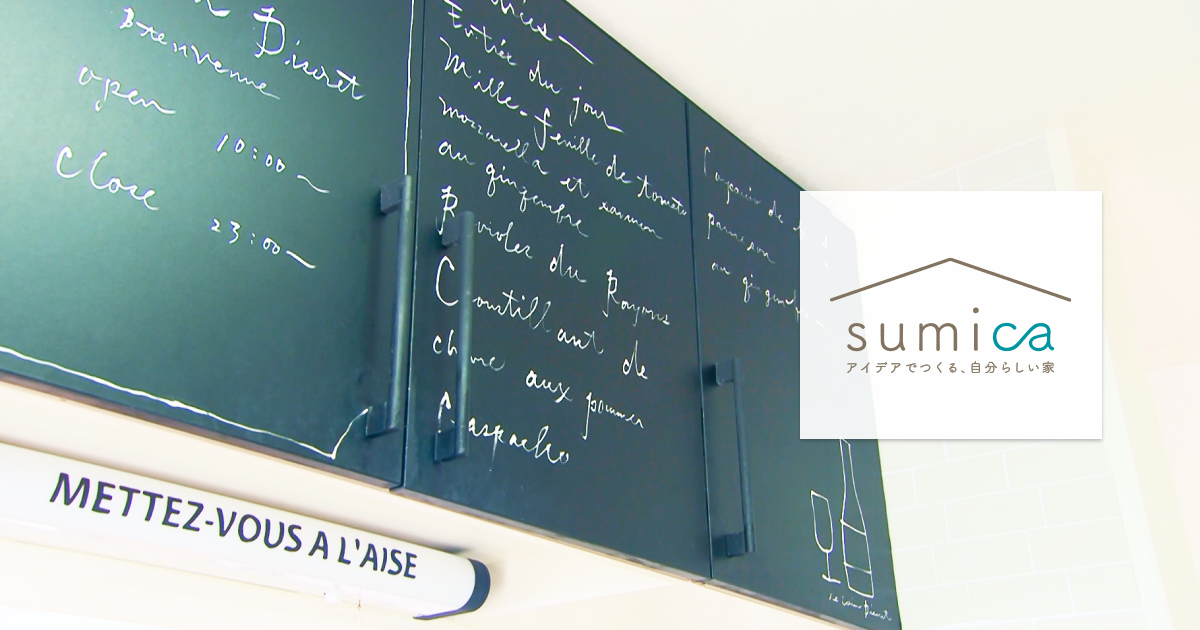 Discret
Bienvenue
open
10:00~
Close
23:00~
Entrée du jour
Mille-feuille de tomate
mozzarella et
au gingembre
Ravioles du Royans
Croustillant de
aux pommes
Gaspacho
de
au gingemb
METTEZ-VOUS A L'AISE
sumica
アイデアでつくる、自分らしい家